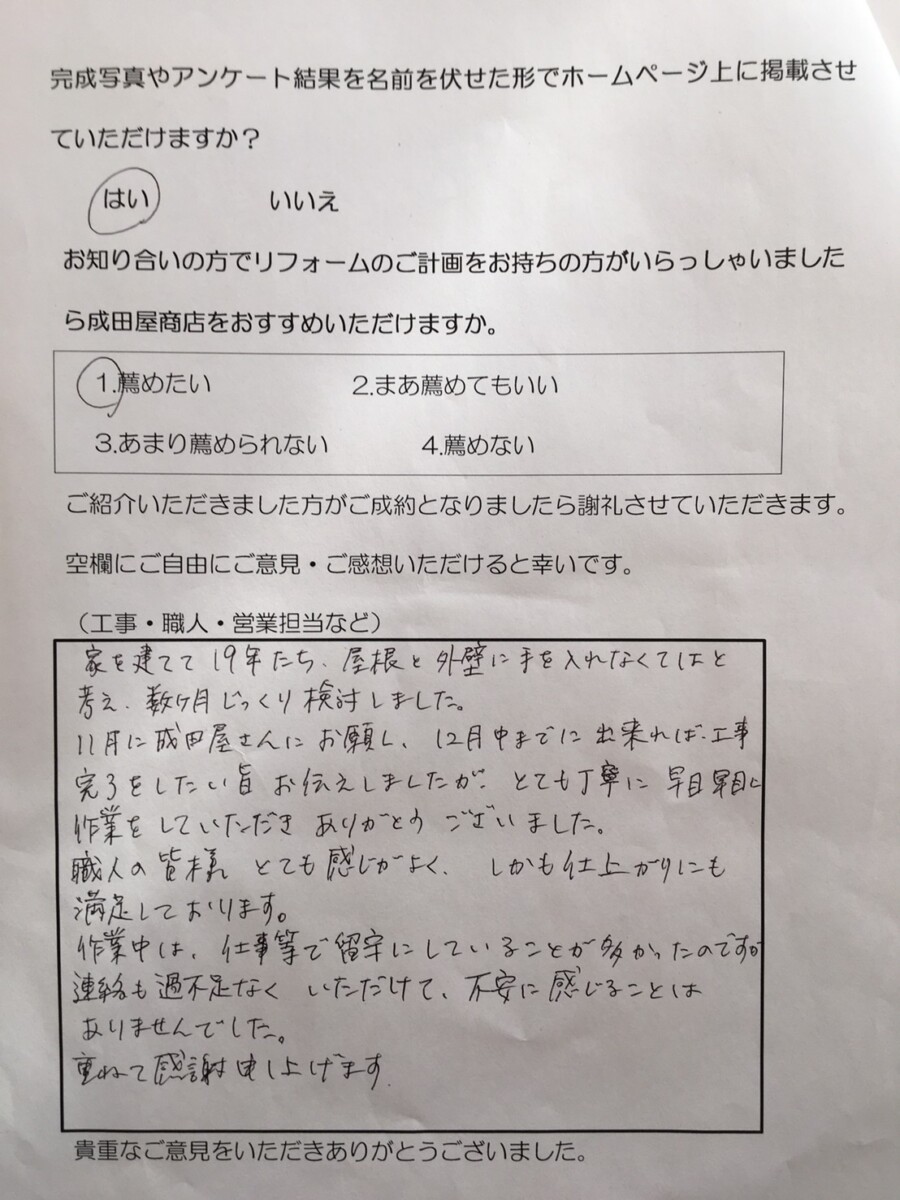 完成写真やアンケート結果を名前を伏せた形でホームページ上に掲載させ
ていただけますか？
はい　いいえ
お知り合いの方でリフォームのご計画をお持ちの方がいらっしゃいました
ら成田屋商店をおすすめいただけますか。
1.薦めたい　2.まあ薦めてもいい
3.あまり薦められない　4.薦めない
ご紹介いただきました方がご成約となりましたら謝礼させていただきます。
空欄にご自由にご意見・ご感想いただけると幸いです。
（工事・職人・営業担当など）
家を建てて19年たち、屋根と外壁に手を入れなくてはと
考え、数ヶ月じっくり検討しました。
11月に成田屋さんにお願し、12月中までに出来れば工事
完了をしたい旨お伝えしましたが、とても丁寧に早目早目に
作業をしていただきありがとうございました。
職人の皆様とても感じがよく、しかも仕上がりにも
満足しております。
作業中は、仕事等で留守にしていることが多かったのですが
連絡も過不足なくいただけて、不安に感じることは
ありませんでした。
重ねて感謝申し上げます
貴重なご意見をいただきありがとうございました。